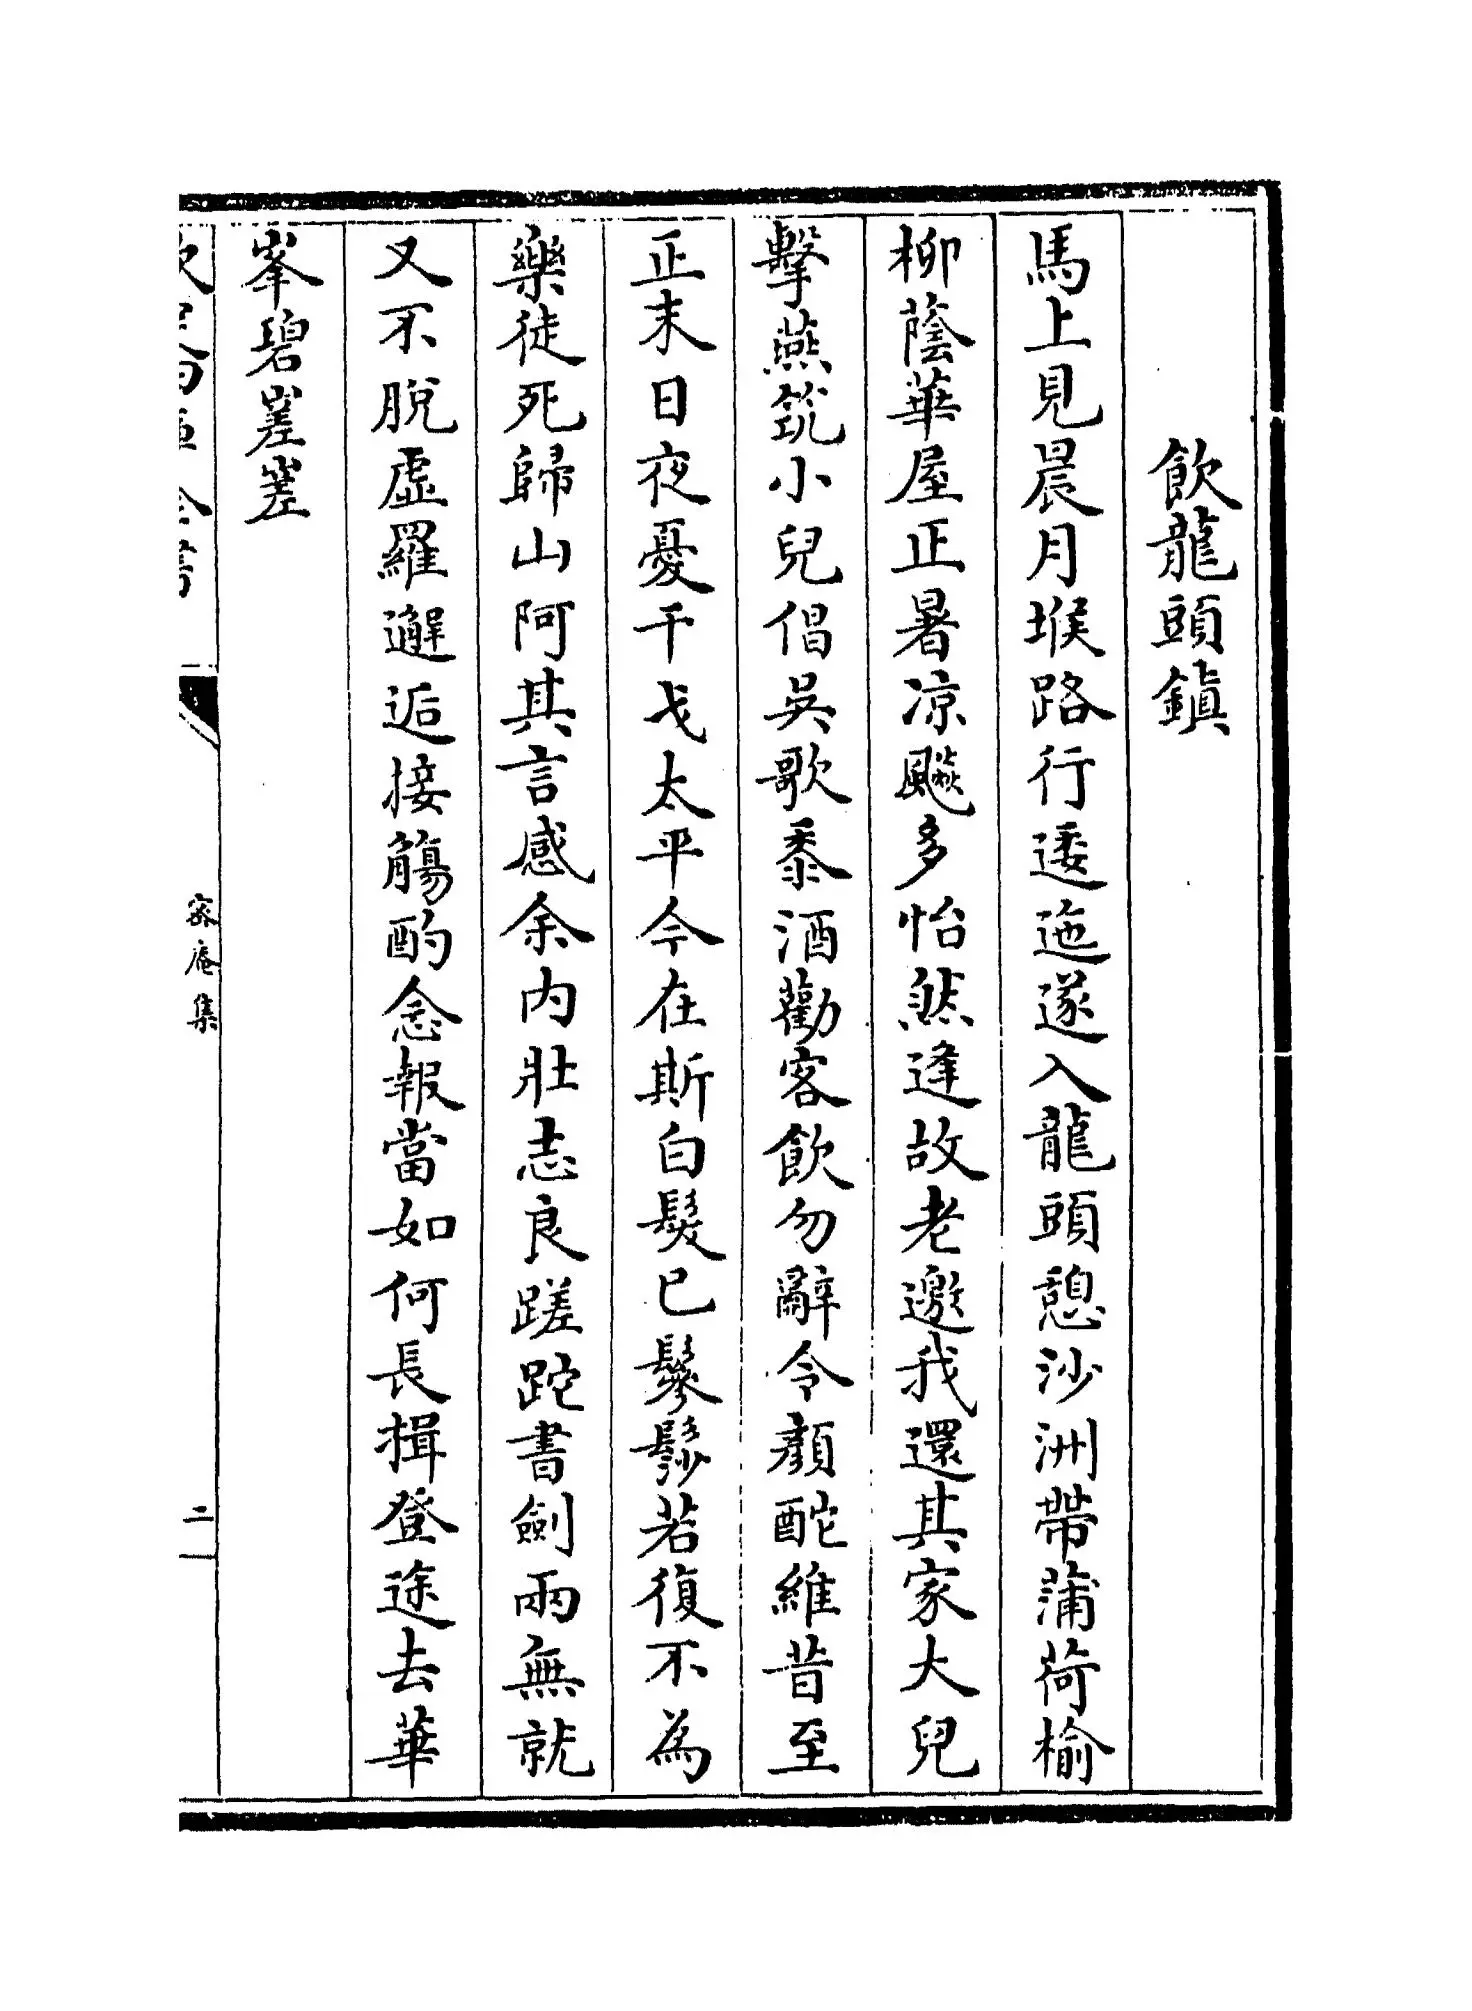 飲龍頭鎮
馬上見晨月堠路行逶迤遂入龍頭憩沙洲帶蒲荷榆
柳蔭華屋正暑凉飈多怡然逢故老邀我還其家大兒
擊燕筑小兒倡吳歌黍酒勸客飲勿辭令顏酡維昔至
正末日夜憂干戈太平今在斯白髮已鬖髿若復不為
樂徒死歸山阿其言感余内壯志良蹉跎書劍兩無就
又不脫虛羅邂逅接觴酌念報當如何長揖登途去華
峯碧嵳嵳
欽定四庫全書
密庵集
二